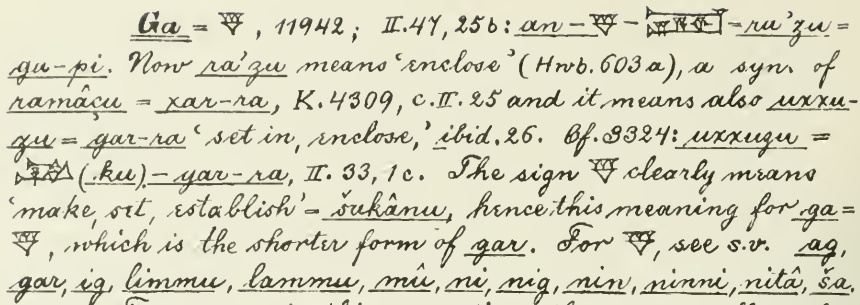 Ga = 𒃻, 11942; II. 47, 25b: an - 𒃻 - - ru'zu =
gu-pi. Now ra'zu means 'enclose' (Hwb. 603a), a syn. of
ramâçu = xar-ra, K. 4309, c. II. 25 and it means also uxxu-
zu = gar-ra 'set in, enclose,' ibid. 26. Cf. 3324: uxxuzu =
(ku) - gar-ra, II. 33, 1c. The sign 𒃻 clearly means
'make, set, establish' - šukânu, hence this meaning for ga =
𒃻, which is the shorter form of gar. For 𒃻, see s.v. ag,
gar, ig, limmu, lammu, mû, ni, nig, nin, ninni, nitâ, ša.